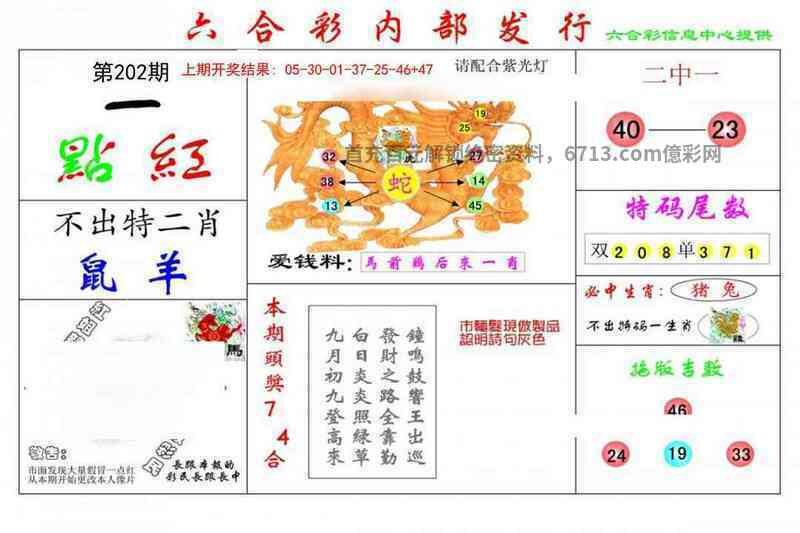 六合彩内部发行
六合彩信息中心提供
第202期
上期开奖结果：05-30-01-37-25-46+47
请配合紫光灯
一
點 紅
不出特二肖
鼠 羊
馬
警告：
市面发现大量假冒一点红
从本期开始更改本人像片
長跟本報的
彩民長跟長中
首充百元解锁绝密资料，6713.com億彩网
19
25
虎
32
27
38
蛇
14
13
45
爱钱料：
馬前鷄后来一肖
本期頭獎7 4合
鐘鳴鼓響王出巡
發財之路全靠勤
白日炎炎照緑草
九月初九登高來
市麵髮現做製品
認明詩句灰色
二中一
40
23
特码尾数
双208单371
必中生肖：
猪 兔
不出特码一生肖
絶版吉数
46
24
19
33